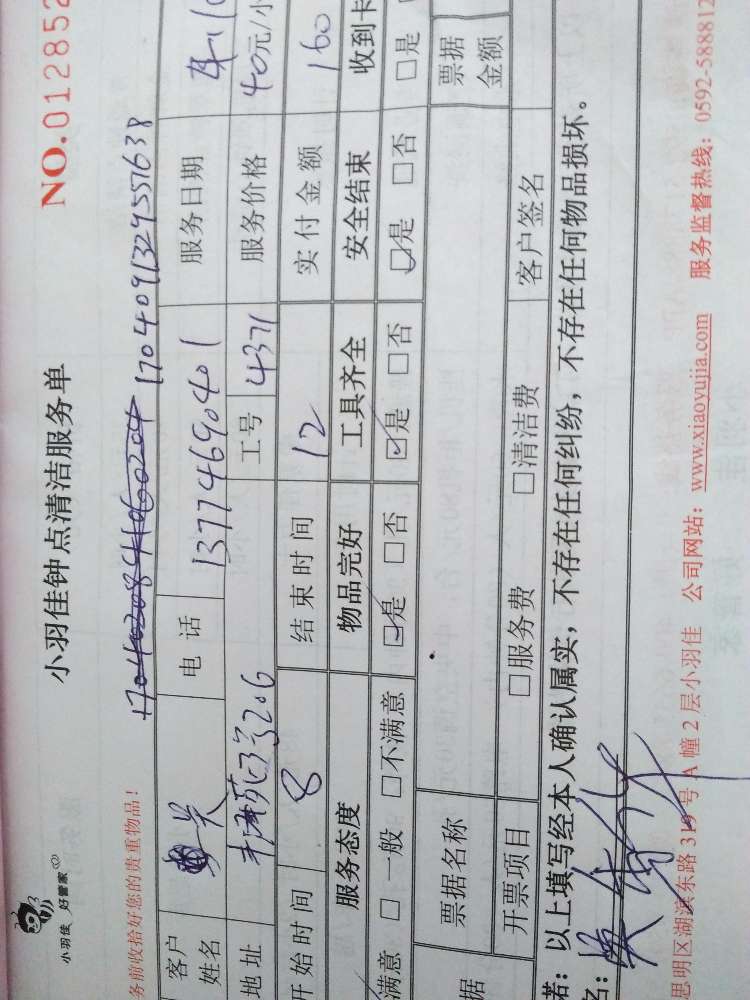 小羽佳 好管家
小羽佳钟点清洁服务单
NO.012852
务前收拾好您的贵重物品！
17040913295557638
客户姓名 吴 电话 13774469040 1 服务日期
地址 3206 工号 4371 服务价格 40元/小
开始时间 8 结束时间 12 实付金额 160
服务态度 物品完好 工具齐全 安全结束 收到卡
满意 □一般 □不满意 ☑是 □否 ☑是 □否 ☑是 □否 □是
据 票据名称 票据金额
开票项目 □服务费 □清洁费 客户签名
若：以上填写经本人确认属实，不存在任何纠纷，不存在任何物品损坏。
名：
思明区湖滨东路319号A幢2层小羽佳 公司网站：www.xiaoyujia.com 服务监督热线：0592-5888812